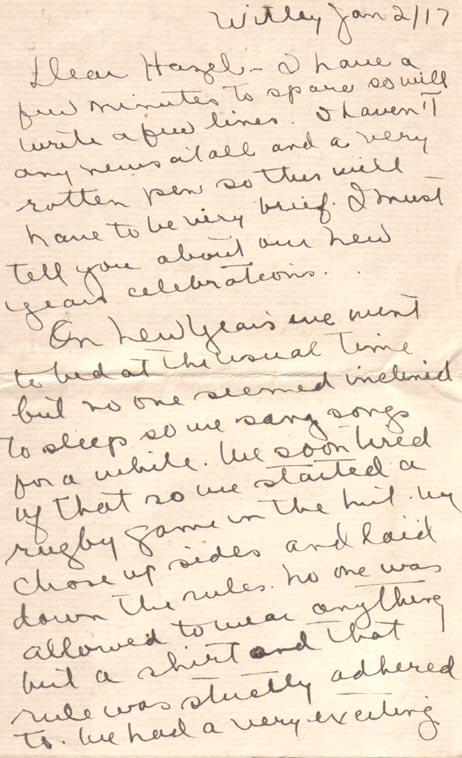 Witley Jan 2/17
Dear Hazel - I have a
few minutes to spare so will
write a few lines. I haven't
any news at all and a very
rotten pen so this will
have to be very brief. I must
tell you about our New
Years celebrations.
On New Years eve we went
to bed at the usual time
but no one seemed inclined
to sleep so we sang songs
for a while. We soon tired
of that so we started a
rugby game in the hut. We
chose up sides and laid
down the rules. No one was
allowed to wear anything
but a shirt and that
rule was strictly adhered
to. We had a very exciting